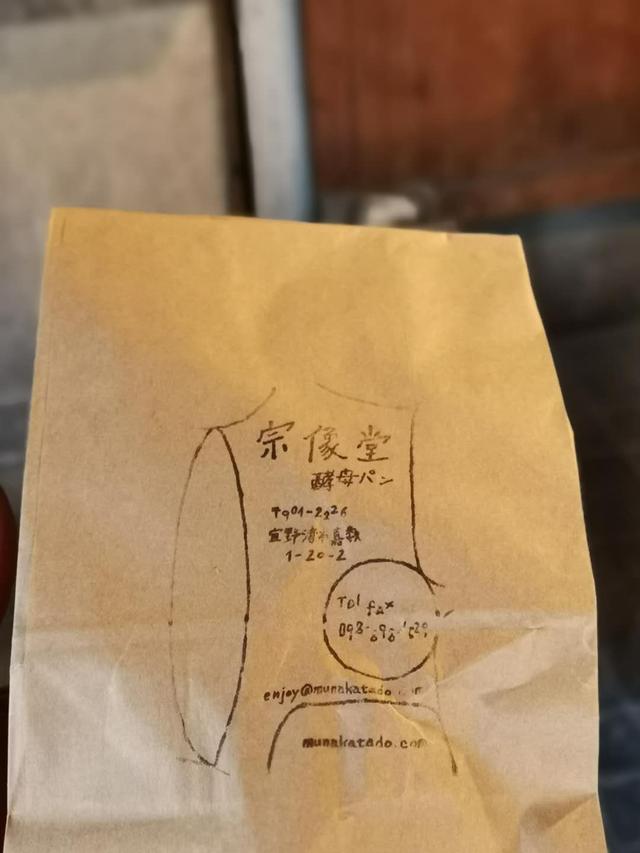 宗像堂
酵母パン
〒901-2226
宜野湾市嘉数
1-20-2
Tel fax
098-898-1529
enjoy@munakatado.com
munakatado.com